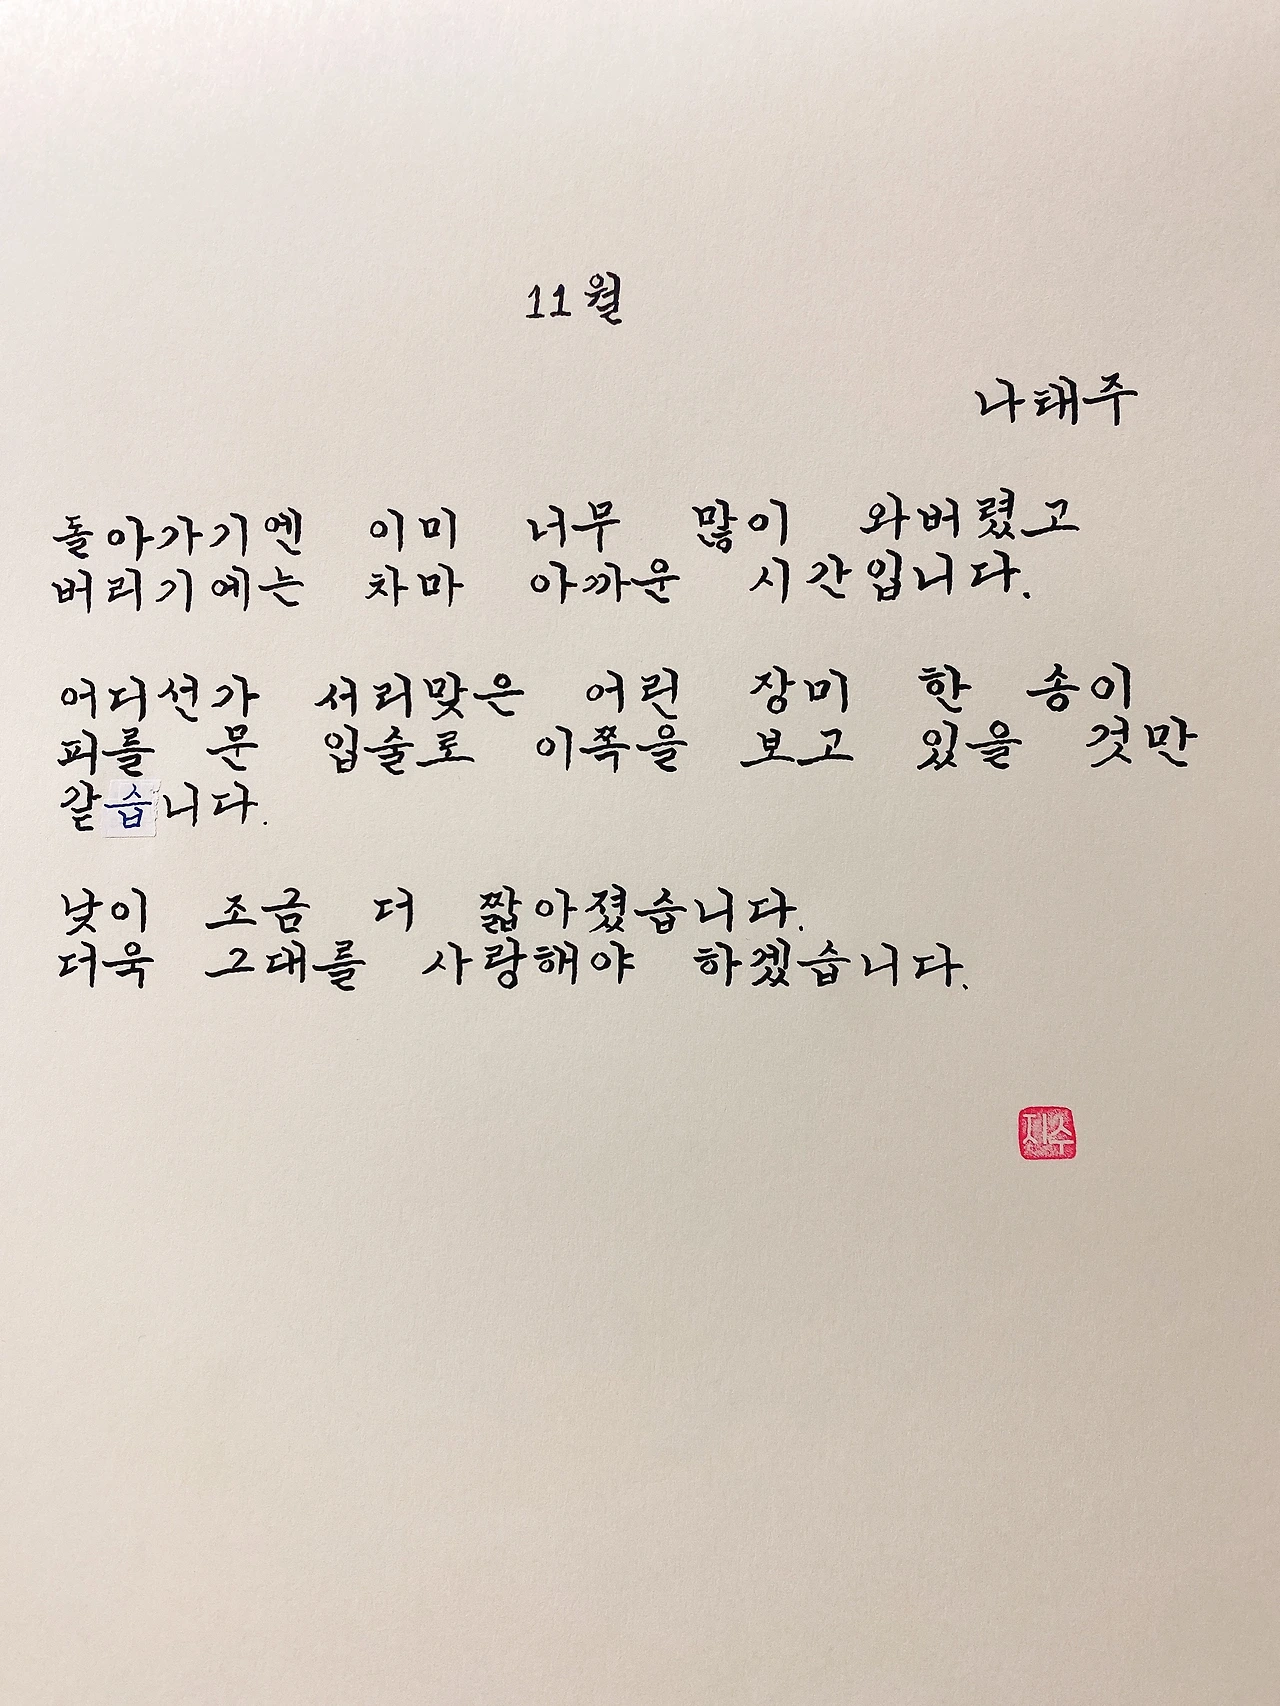 11월
나태주
돌아가기엔 이미 너무 많이 와버렸고
버리기에는 차마 아까운 시간입니다.
어디선가 서리맞은 어린 장미 한 송이
피를 문 입술로 이쪽을 보고 있을 것만
같습니다.
낮이 조금 더 짧아졌습니다.
더욱 그대를 사랑해야 하겠습니다.
지수